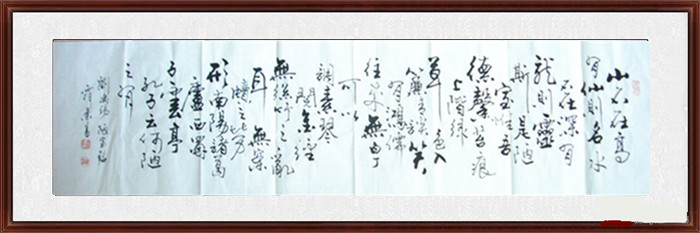 山不在高
有仙則名水
不在深有
龍則靈
斯是陋
室惟吾
德馨苔痕
上階綠
草色入
簾青談笑
有鴻儒
往來無白丁
可以
調素琴
閱金經
無絲竹之亂
耳無案
牘之勞
形南陽諸葛
廬西蜀
子雲亭
孔子云何陋
之有
劉禹錫陋室銘